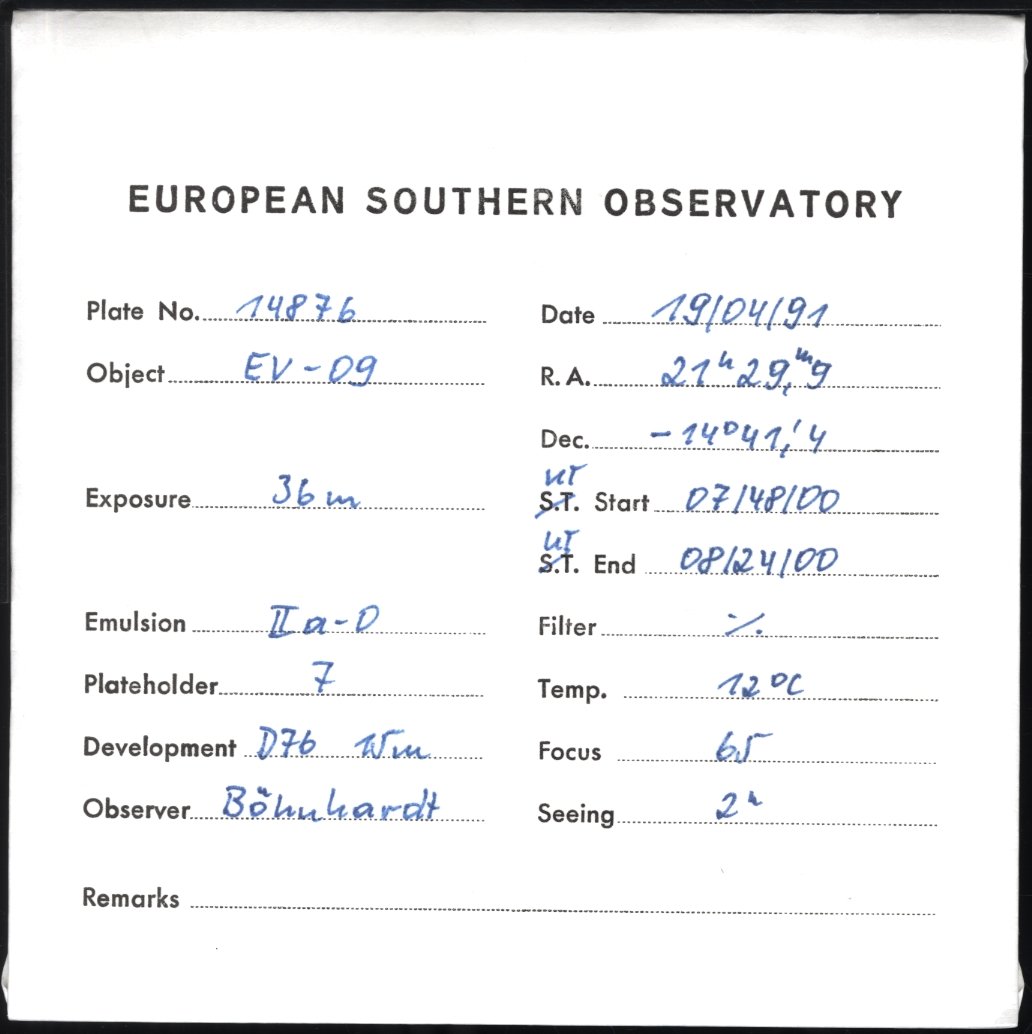 EUROPEAN SOUTHERN OBSERVATORY
Plate No. 14876 Date 19/04/91
Object EV-09 R. A. 21ʰ29,ᵐ9
Dec. -14°41,'4
UT
Exposure 36m S.T. Start 07/48/00
UT
S.T. End 08/24/00
Emulsion IIa-D Filter ·/.
Plateholder 7 Temp. 12°C
Development D76 15m Focus 65
Observer Böhnhardt Seeing 2"
Remarks